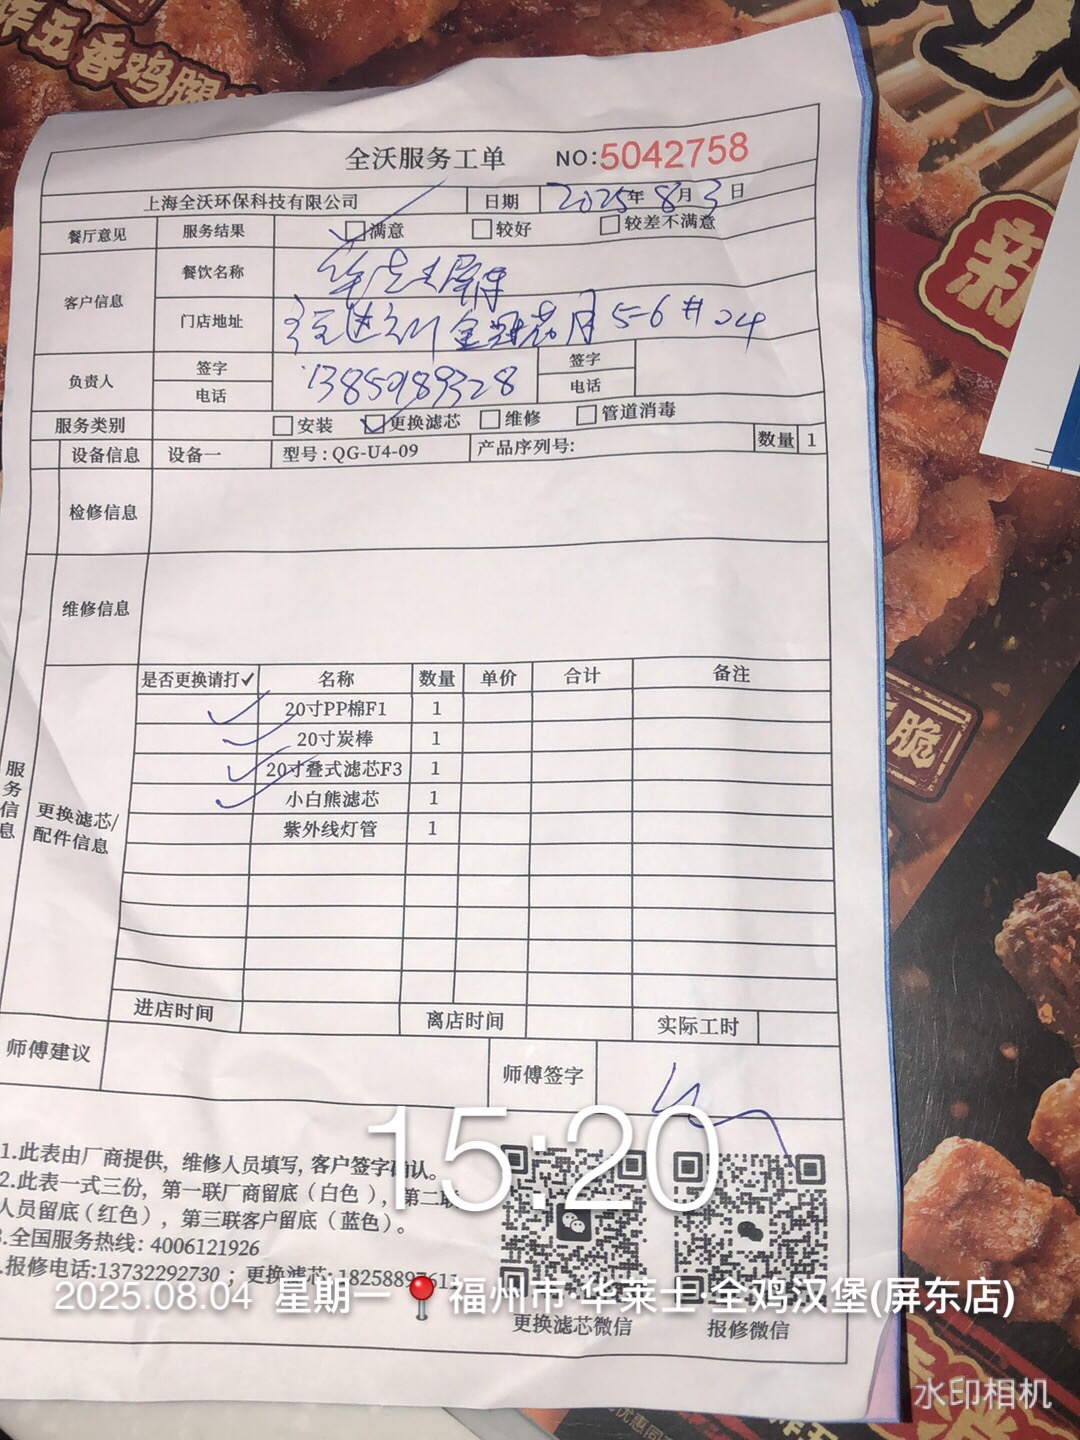 炸五香鸡腿
新
脆
全沃服务工单 NO:5042758
上海全沃环保科技有限公司 日期 2025年8月3日
餐厅意见 服务结果 满意 较好 较差不满意
客户信息 餐饮名称
门店地址 5-6#24
负责人 签字 电话 13859189328 签字 电话
服务类别 安装 更换滤芯 维修 管道消毒
设备信息 设备一 型号:QG-U4-09 产品序列号: 数量 1
检修信息
维修信息
服务信息
更换滤芯/配件信息
是否更换请打✓ 名称 数量 单价 合计 备注
✓ 20寸PP棉F1 1
✓ 20寸炭棒 1
✓ 20寸叠式滤芯F3 1
✓ 小白熊滤芯 1
紫外线灯管 1
进店时间 离店时间 实际工时
师傅建议 师傅签字
15:20
1.此表由厂商提供，维修人员填写，客户签字确认。
2.此表一式三份，第一联厂商留底（白色），第二联
人员留底（红色），第三联客户留底（蓝色）。
3.全国服务热线: 4006121926
.报修电话:13732292730；更换滤芯:
更换滤芯微信 报修微信
2025.08.04 星期一 福州市·华莱士·全鸡汉堡(屏东店)
水印相机